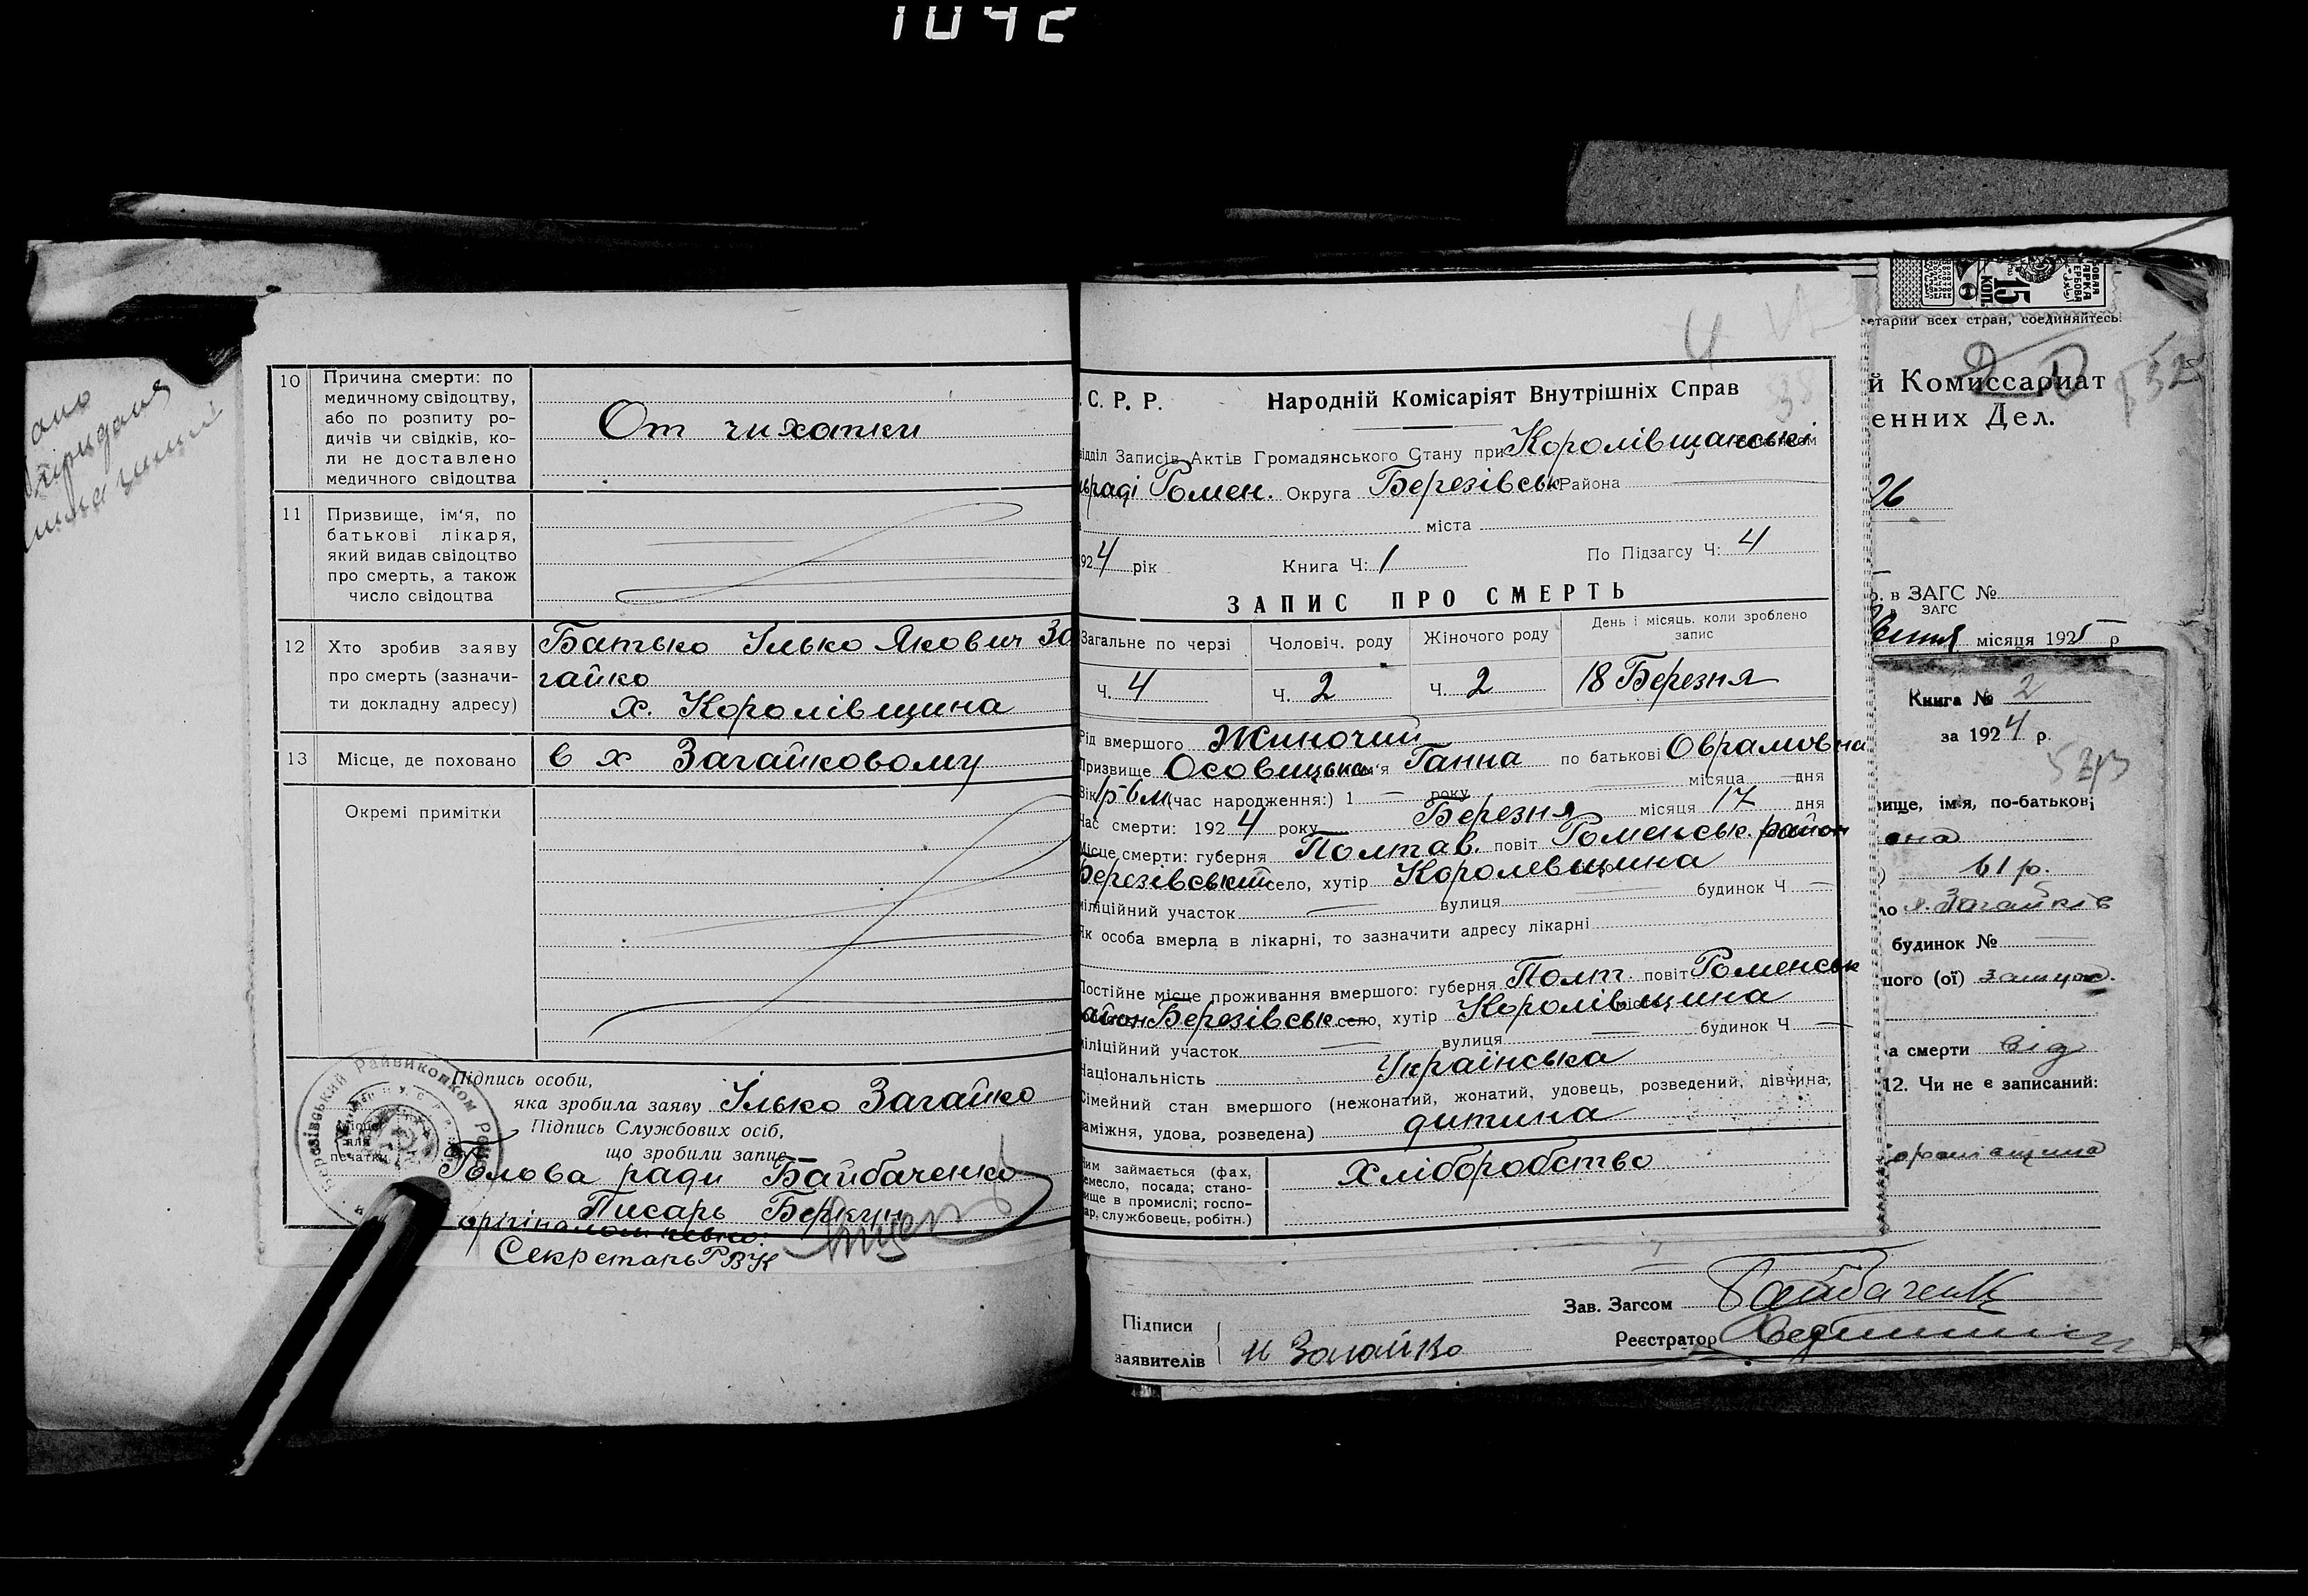 1042
10 Причина смерти: по
медичному свідоцтву,
або по розпиту ро-
дичів чи свідків, ко-
ли не доставлено
медичного свідоцтва
От чихатки
11 Призвище, ім'я, по
батькові лікаря,
який видав свідоцтво
про смерть, а також
число свідоцтва
12 Хто зробив заяву
про смерть (зазначи-
ти докладну адресу)
Батько Ілько Якович За
гайко
х. Королівщина
13 Місце, де поховано в х Загайковому
Окремі примітки
Підпись особи,
яка зробила заяву Ілько Загайко
Підпись Службових осіб,
що зробили запис
Голова ради Байбаченко
Писарь Беркун
Секретарь РВК
С. Р. Р. Народній Комісаріят Внутрішніх Справ
відділ Записів Актів Громадянського Стану при Королівщанські
раді Ромен. Округа Березівськ Района
міста
1924 рік Книга Ч: 1 По Підзагсу Ч: 4
ЗАПИС ПРО СМЕРТЬ
Загальне по черзі Чоловіч. роду Жіночого роду День і місяць. коли зроблено
запис
Ч. 4 Ч. 2 Ч. 2 18 Березня
Рід вмершого Жиночий
Призвище Осовицька ім'я Ганна по батькові Оврамовна
Вік 1р 6м (час народження:) 1 — року місяца — дня
Час смерти: 1924 року Березня місяця 17 дня
Місце смерти: губерня Полтав. повіт Роменськ. район
Березівський село, хутір Королевщина
міліційний участок — вулиця — будинок Ч —
Як особа вмерла в лікарні, то зазначити адресу лікарні
Постійне місце проживання вмершого: губерня Полт. повіт Роменськ
район Березівськ село, хутір Королівщина
міліційний участок — вулиця — будинок Ч —
Національність Українська
Сімейний стан вмершого (нежонатий, жонатий, удовець, розведений, дівчина,
заміжня, удова, розведена) дитина
Чим займається (фах,
ремесло, посада; стано-
вище в промислі; госпо-
дар, службовець, робітн.)
Хліборобство
15 КОП.
етарии всех стран, соединяйтесь!
й Комиссариат
енних Дел.
26
в ЗАГС №
ЗАГС
місяця 1925 р
Книга № 2
за 1924 р.
вище, ім'я, по-батькові
61 р.
х. Загайків
будинок № —
шого (ої) замуж.
а смерти від
12. Чи не є записаний:
Зав. Загсом Байбаченко
Підписи
заявителів И Загайко
Реєстратор